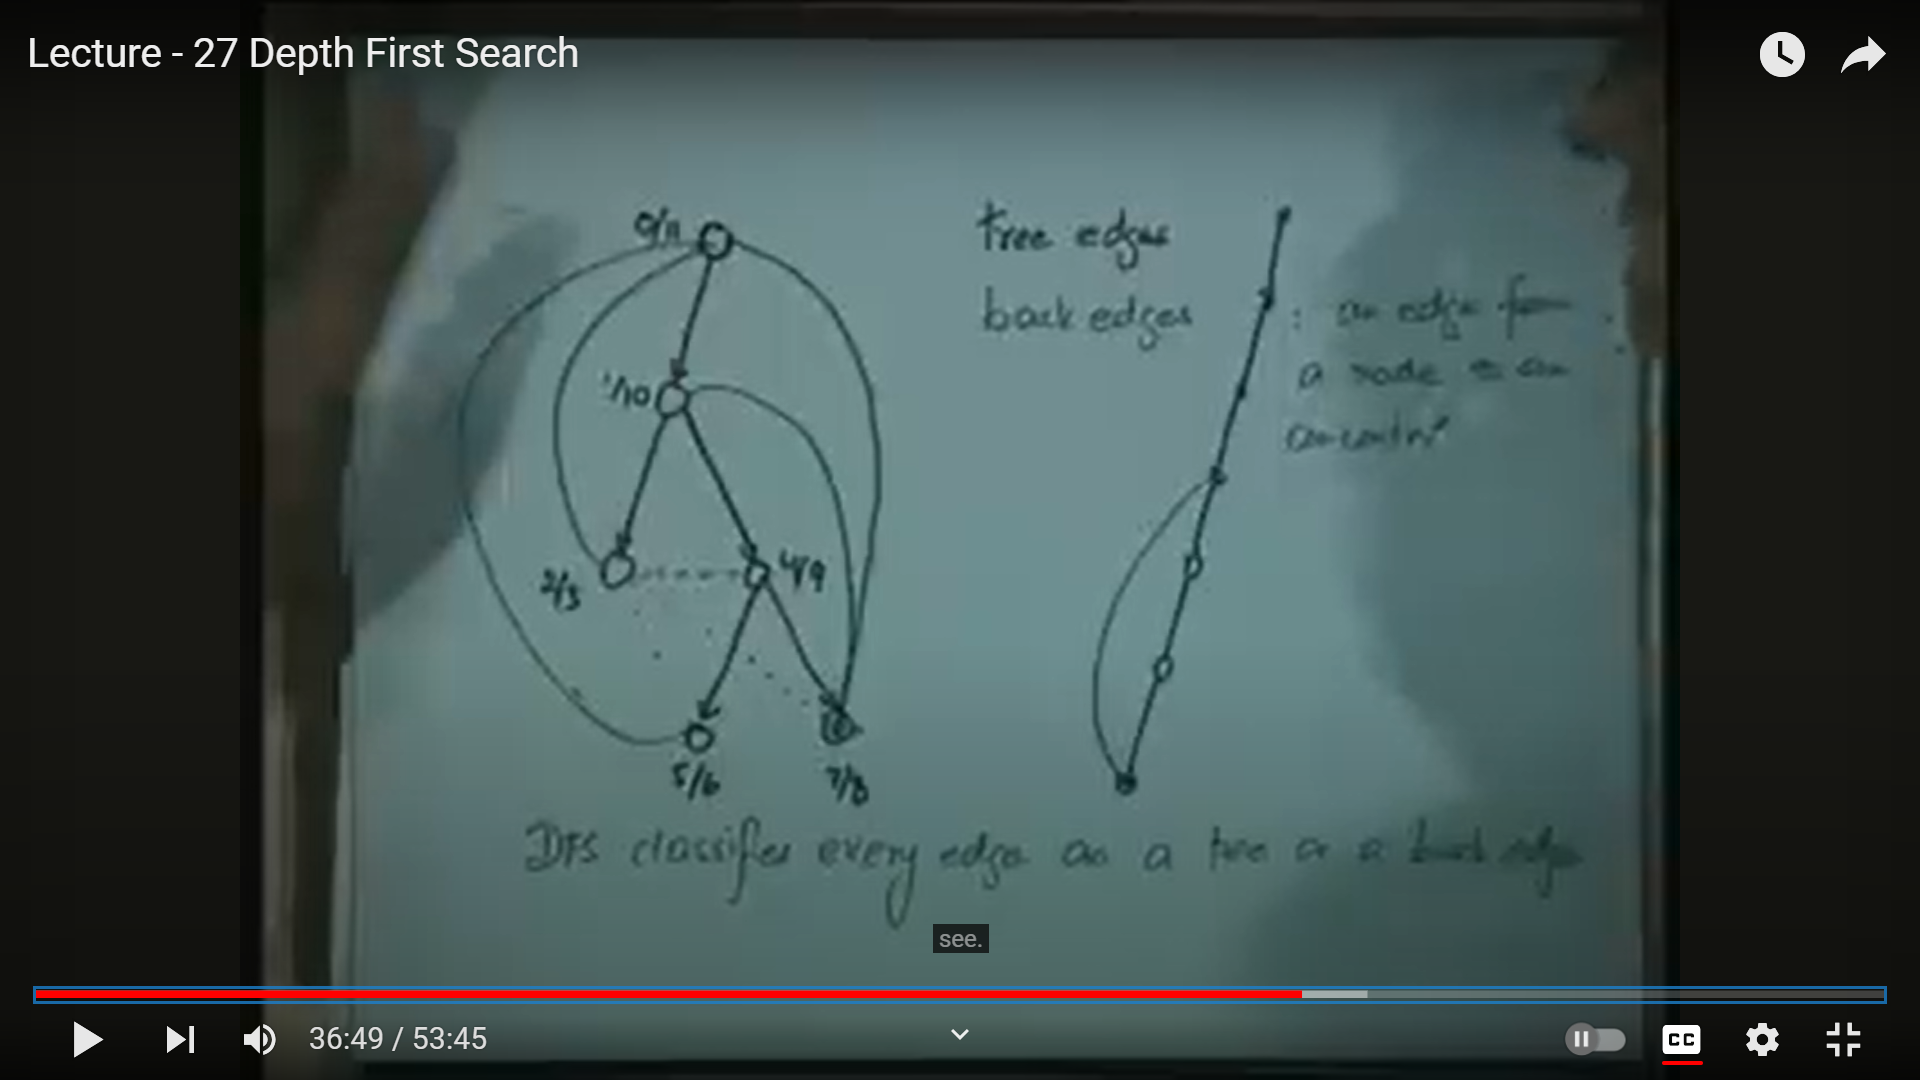 Lecture - 27 Depth First Search
0/11
tree edges
back edges
: an edge from
a node to an
1/10
2/3
4/9
5/6
7/8
DFS classifies every edge as a tree or a back edge
see.
36:49 / 53:45
CC